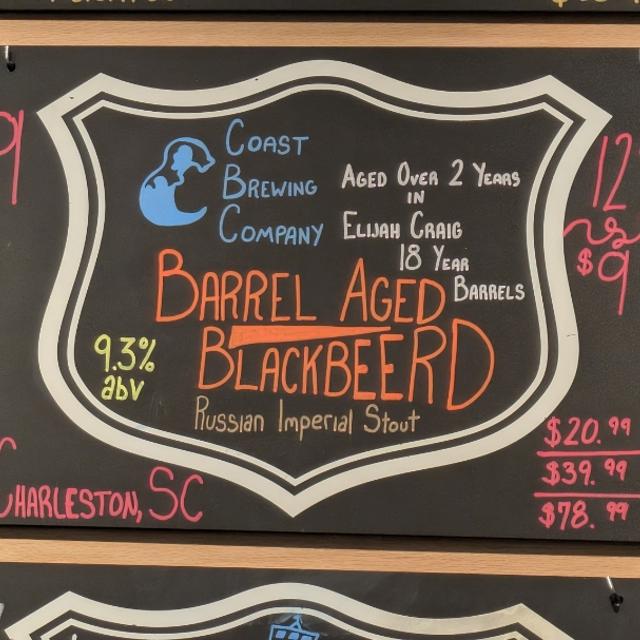 Coast
Brewing
Company
Aged Over 2 Years
in
Elijah Craig
18 Year
Barrels
Barrel Aged
Blackbeerd
Russian Imperial Stout
9.3%
abv
Charleston, SC
9
12
$9
$20.99
$39.99
$78.99